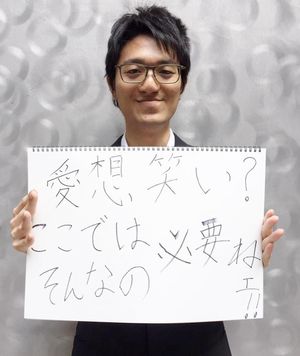 愛想笑い？
ここでは必要ねェ!!
そんなの